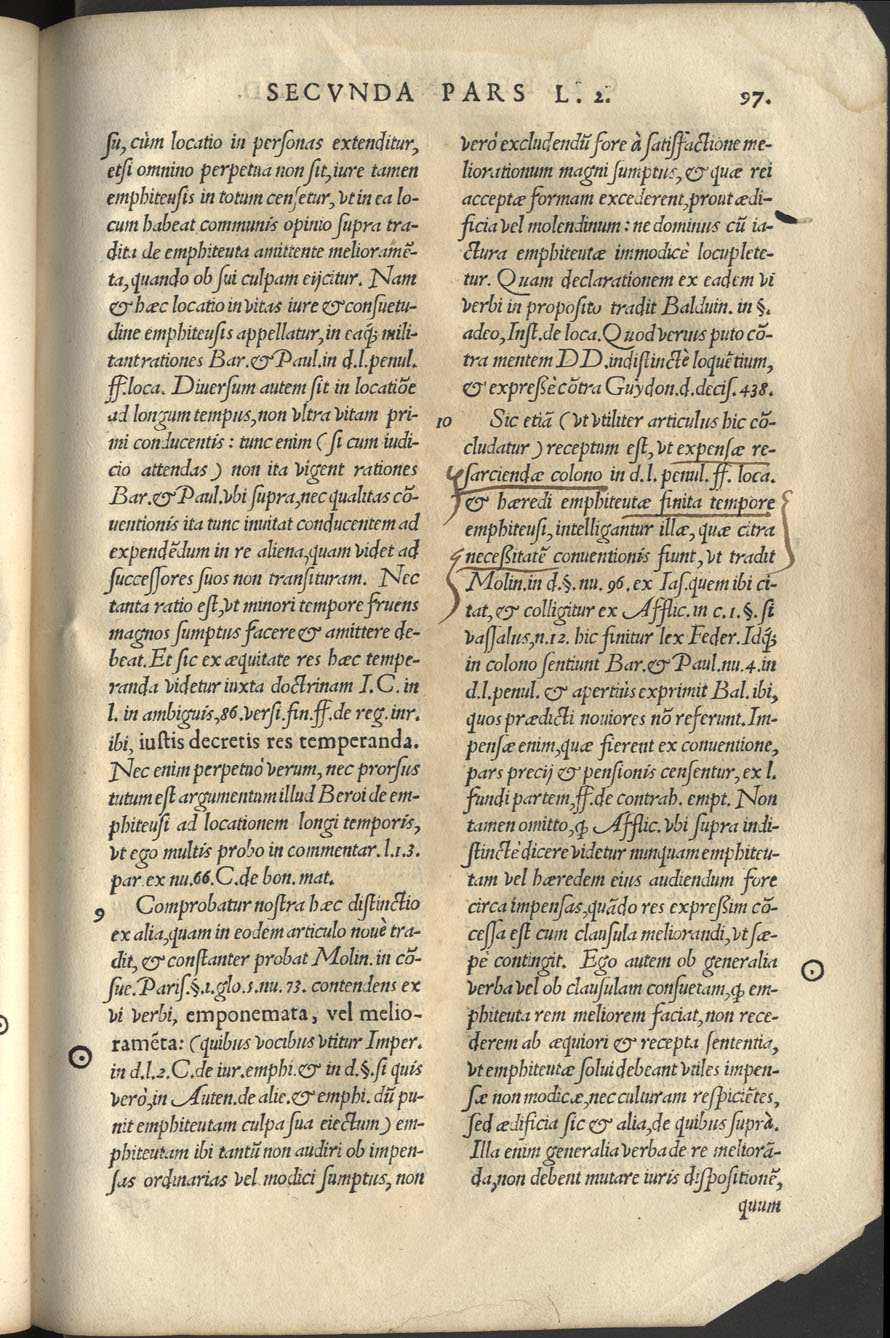 SECVNDA PARS L. 2.
97.
su, cùm locatio in personas extenditur,
etsi omnino perpetua non sit, iure tamen
emphiteusis in totum censetur, vt in ea lo-
cum habeat communis opinio supra tra-
dita de emphiteuta amittente melioramē-
ta, quando ob sui culpam eijcitur. Nam
& hæc locatio in vitas iure & consuetu-
dine emphiteusis appellatur, in eaq́; mili-
tant rationes Bar. & Paul. in d. l. penul.
ff. loca. Diuersum autem sit in locatiōe
ad longum tempus, non vltra vitam pri-
mi conducentis: tunc enim (si cum iudi-
cio attendas) non ita vigent rationes
Bar. & Paul. vbi supra, nec qualitas cō-
uentionis ita tunc inuitat conducentem ad
expendēdum in re aliena, quam videt ad
successores suos non transituram. Nec
tanta ratio est, vt minori tempore fruens
magnos sumptus facere & amittere de-
beat. Et sic ex æquitate res hæc tempe-
randa videtur iuxta doctrinam I. C. in
l. in ambiguis, 86. versi. fin. ff. de reg. inr.
ibi, iustis decretis res temperanda.
Nec enim perpetuò verum, nec prorsus
tutum est argumentum illud Beroi de em-
phiteusi ad locationem longi temporis,
vt ego multis probo in commentar. l. 1. 3.
par. ex nu. 66. C. de bon. mat.
9
Comprobatur nostra hæc distinctio
ex alia, quam in eodem articulo nouè tra-
dit, & constanter probat Molin. in cō-
sue. Paris. §. 1. glo. 5. nu. 73. contendens ex
vi verbi, emponemata, vel melio-
ramēta: (quibus vocibus vtitur Imper.
in d. l. 2. C. de iur. emphi. & in d. §. si quis
verò, in Auten. de alie. & emphi. dū pu-
nit emphiteutam culpa sua eiectum) em-
phiteutam ibi tantū non audiri ob impen-
sas ordinarias vel modici sumptus, non
verò excludendū fore à satisfactione me-
liorationum magni sumptus, & quæ rei
acceptæ formam excederent, prout ædi-
ficia vel molendinum: ne dominus cū ia-
ctura emphiteutæ immodicè locuplete-
tur. Quam declarationem ex eadem vi
verbi in proposito tradit Balduin. in §.
adeo, Inst. de loca. Quod verius puto cō-
tra mentem DD. indistinctè loquētium,
& expreßè cōtra Guydon. d. decis. 438.
10
Sic etiā (vt vtiliter articulus hic cō-
cludatur) receptum est, vt expensæ re-
sarciendæ colono in d. l. penul. ff. loca.
& hæredi emphiteutæ finita tempore
emphiteusi, intelligantur illæ, quæ citra
neceßitatē conuentionis fiunt, vt tradit
Molin. in d. §. nu. 96. ex Ias. quem ibi ci-
tat, & colligitur ex Afflic. in c. 1. §. si
vassalus, n. 12. hic finitur lex Feder. Idq́;
in colono sentiunt Bar. & Paul. nu. 4. in
d. l. penul. & apertiùs exprimit Bal. ibi,
quos prædicti nouiores nō referunt. Im-
pensæ enim, quæ fierent ex conuentione,
pars precij & pensionis censentur, ex l.
fundi partem, ff. de contrah. empt. Non
tamen omitto, ꝙ Afflic. vbi supra indi-
stinctè dicere videtur nunquam emphiteu-
tam vel hæredem eius audiendum fore
circa impensas, quādo res expreßim cō-
cessa est cum clausula meliorandi, vt sæ-
pe contingit. Ego autem ob generalia
verba vel ob clausulam consuetam, ꝙ em-
phiteuta rem meliorem faciat, non rece-
derem ab æquiori & recepta sententia,
vt emphiteutæ solui debeant vtiles impen-
sæ non modicæ, nec culturam respiciētes,
sed ædificia sic & alia, de quibus suprà.
Illa enim generalia verba de re meliorā-
da, non debent mutare iuris dispositionē,
quum